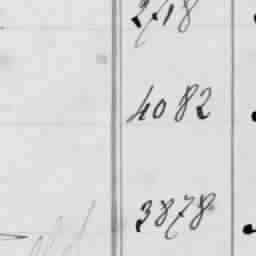 2718
4082
3878